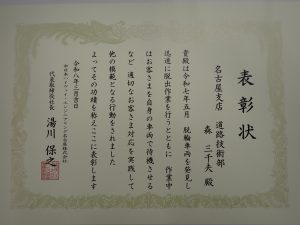 表彰状
名古屋支店 道路技術部
森 三千夫 殿
貴殿は令和七年五月 脱輪車両を発見し
迅速に脱出作業を行うとともに 作業中
はお客さまを自身の車両で待機させる
など 適切なお客さま対応を実践して
他の模範となる行動をされました
よってその功績を称えここに表彰します
令和八年三月吉日
中日本ハイウェイ・エンジニアリング名古屋株式会社
代表取締役社長 湯川 保之